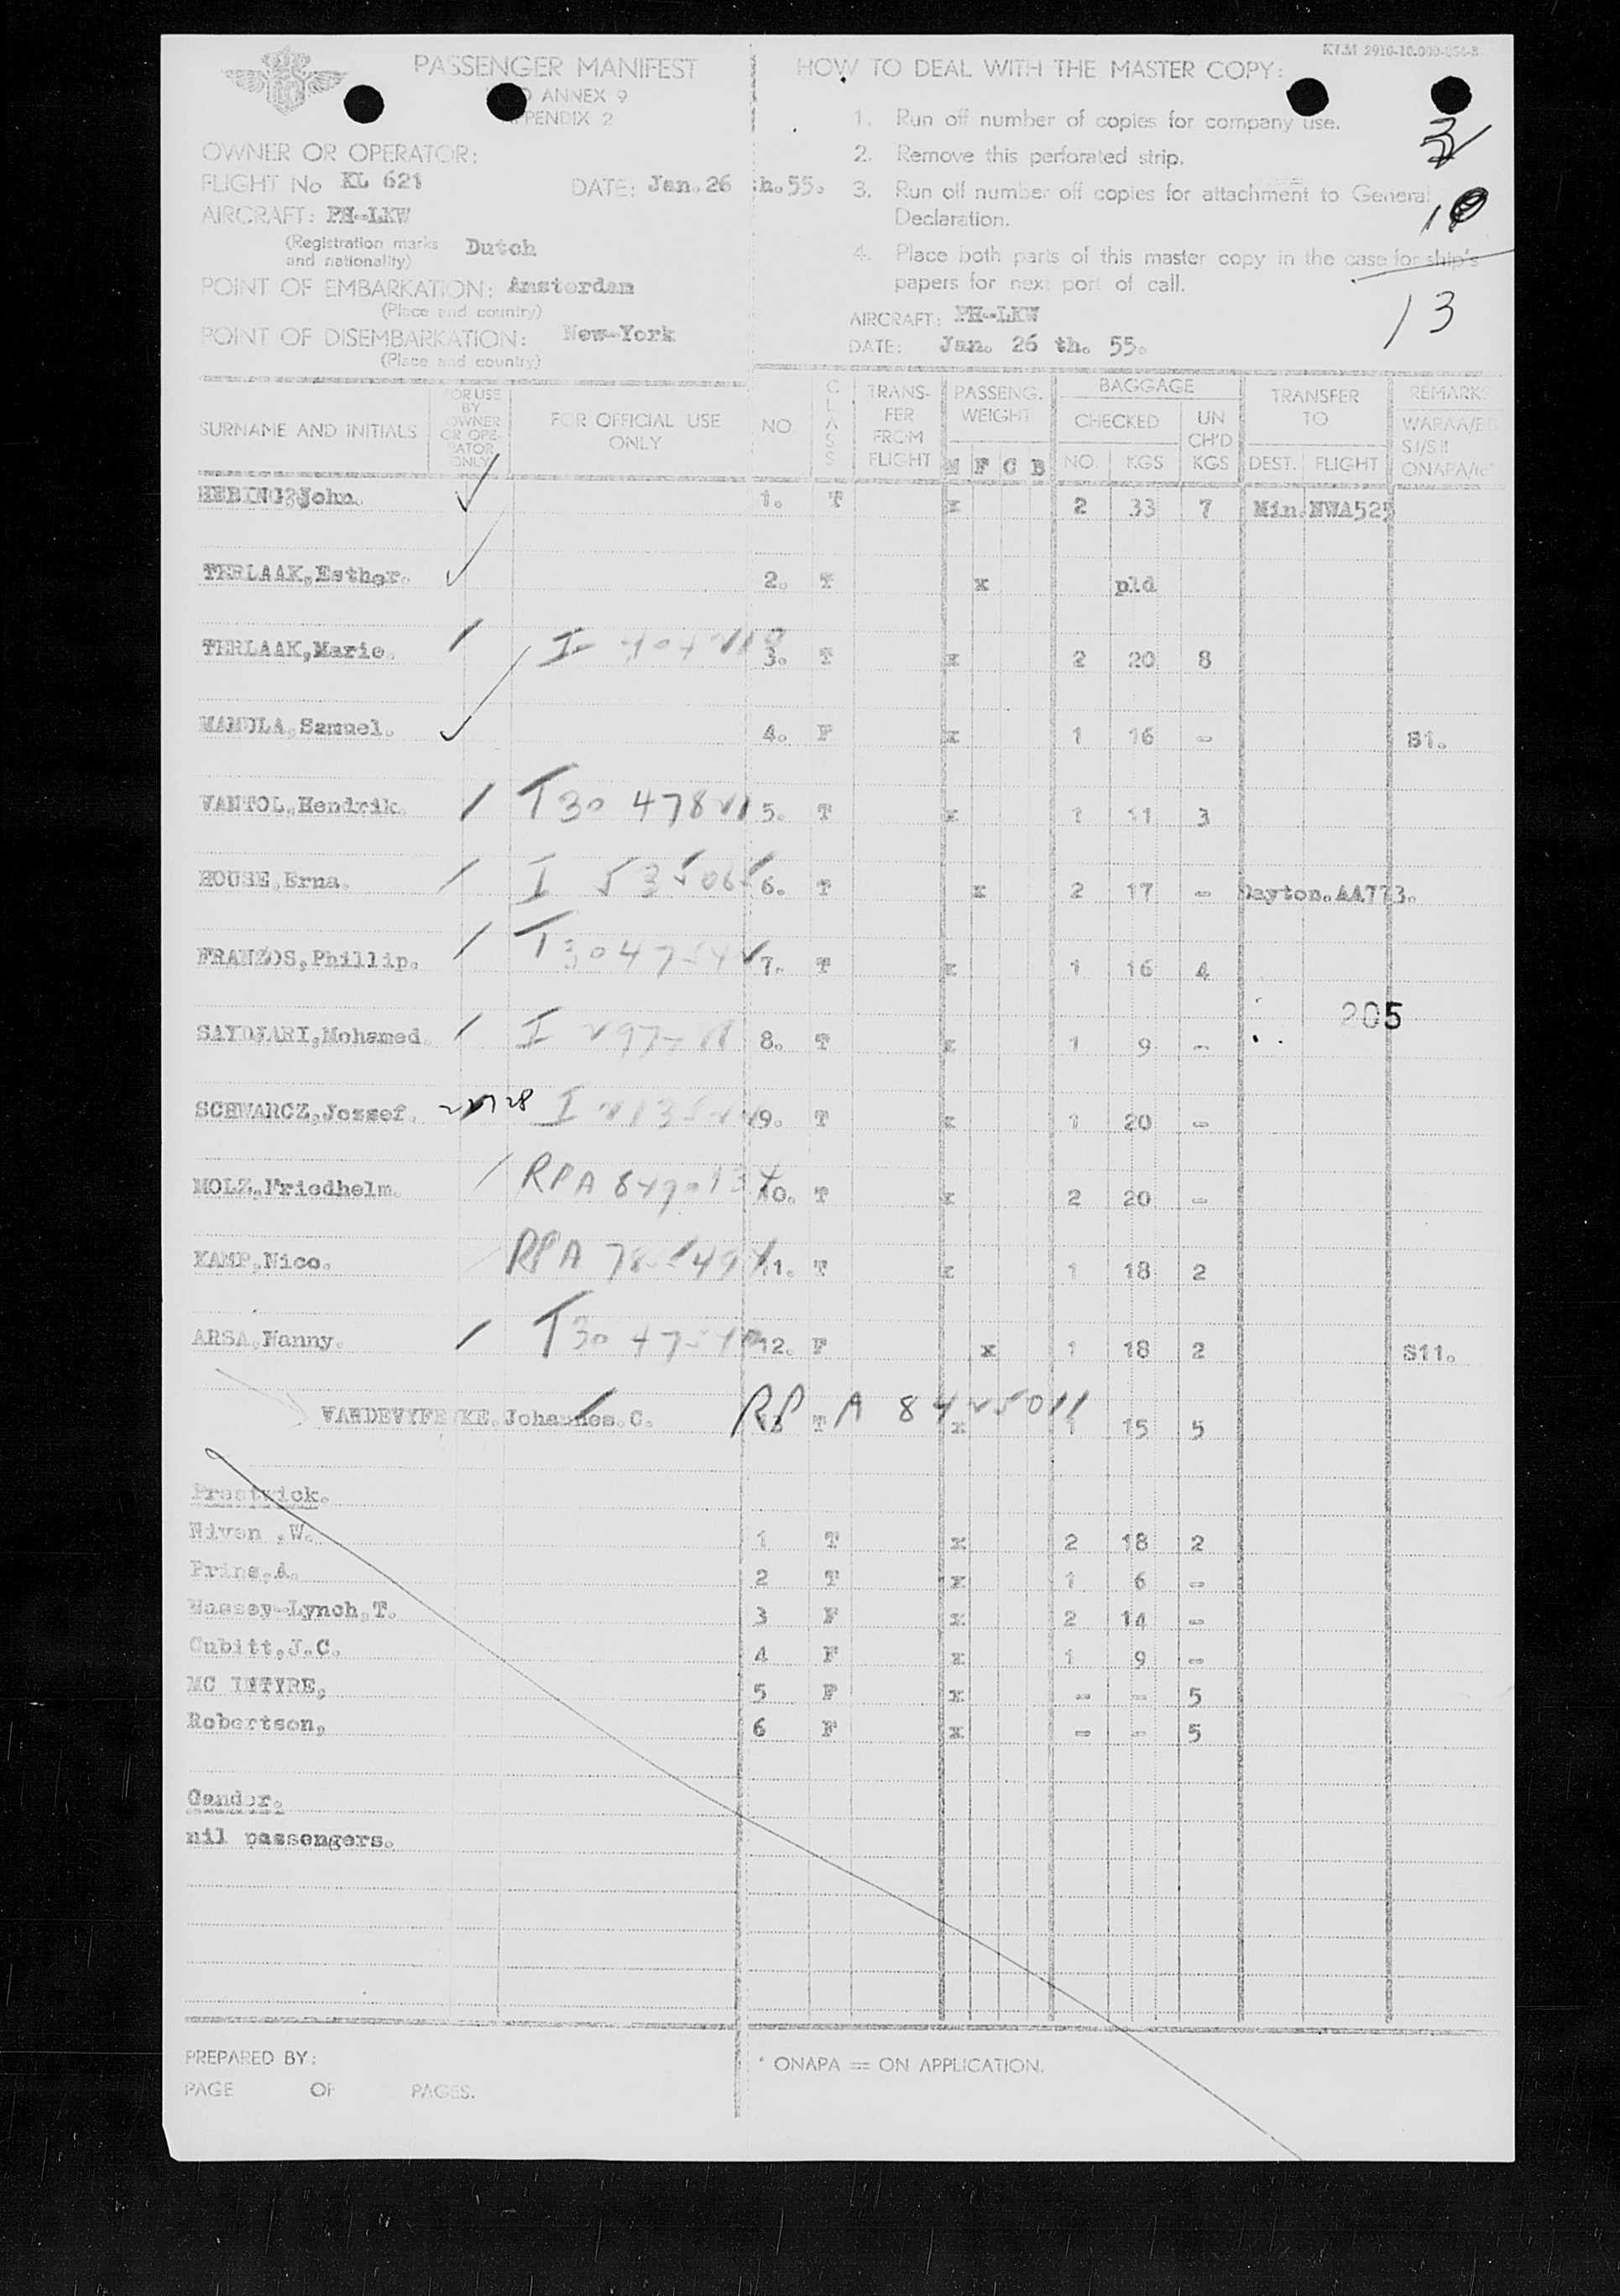 KLM 2910-10.000-054-B
PASSENGER MANIFEST
ANNEX 9
APPENDIX 2
OWNER OR OPERATOR:
FLIGHT No KL 621
DATE: Jan. 26 th. 55.
AIRCRAFT: PH-LKW
(Registration marks and nationality) Dutch
POINT OF EMBARKATION: Amsterdam
(Place and country)
POINT OF DISEMBARKATION: New-York
(Place and country)
HOW TO DEAL WITH THE MASTER COPY:
1. Run off number of copies for company use.
2. Remove this perforated strip.
3. Run off number off copies for attachment to General
Declaration.
4. Place both parts of this master copy in the case for ship's
papers for next port of call.
AIRCRAFT: PH-LKW
DATE: Jan. 26 th. 55.
3
10
13
SURNAME AND INITIALS
FOR USE BY OWNER OR OPERATOR ONLY
FOR OFFICIAL USE ONLY
NO
CLASS
TRANSFER FROM FLIGHT
PASSENG. WEIGHT
M F C B
BAGGAGE
CHECKED
NO. KGS
UN CH'D KGS
TRANSFER TO
DEST. FLIGHT
REMARKS
SI/SII
HEBING, John. 1. T x 2 33 7 Min. NWA525
TERLAAK, Esther. 2. T x pld
TERLAAK, Marie. I 3. T x 2 20 8
MAMULA, Samuel. 4. F x 1 16 - S1.
VANTOL, Hendrik. T30 478 5. T x 1 11 3
HOUSE, Erna. I 535065 6. T x 2 17 - Dayton. AA773.
FRANZOS, Phillip. T30475 7. T x 1 16 4
205
SAYDJARI, Mohamed. I 8. T x 1 9 -
SCHWARCZ, Jozsef. I 9. T x 1 20 -
MOLZ, Friedhelm. RPA 10. T x 2 20 -
KAMP, Nico. RPA 11. T x 1 18 2
ARSA, Nanny. T30 475 12. F x 1 18 2 S11.
VANDEVYFEYKE, Johannes. C. 13 T RPA 8425011 x 1 15 5
Prestwick.
Niven ,W. 1 T x 2 18 2
Prins, A. 2 T x 1 6 -
Massey-Lynch, T. 3 F x 2 14 -
Cubitt, J.C. 4 F x 1 9 -
MC INTYRE, 5 F x - - 5
Robertson, 6 F x - - 5
Gander.
nil passengers.
PREPARED BY:
PAGE OF PAGES.
* ONAPA = ON APPLICATION.